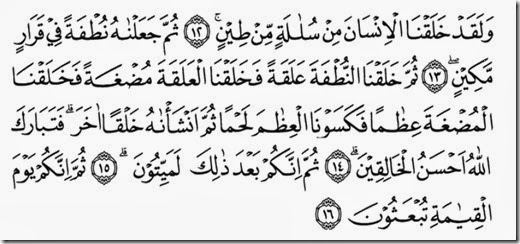 وَلَقَدْ خَلَقْنَا الْاِنْسَانَ مِنْ سُلٰلَةٍ مِّنْ طِيْنٍ ۚ ﴿١٢﴾ ثُمَّ جَعَلْنٰهُ نُطْفَةً فِيْ قَرَارٍ
مَّكِيْنٍ ۖ ﴿١٣﴾ ثُمَّ خَلَقْنَا النُّطْفَةَ عَلَقَةً فَخَلَقْنَا الْعَلَقَةَ مُضْغَةً فَخَلَقْنَا
الْمُضْغَةَ عِظٰمًا فَكَسَوْنَا الْعِظٰمَ لَحْمًا ثُمَّ اَنْشَأْنٰهُ خَلْقًا اٰخَرَ ۗ فَتَبَارَكَ
اللّٰهُ اَحْسَنُ الْخَالِقِيْنَ ۗ ﴿١٤﴾ ثُمَّ اِنَّكُمْ بَعْدَ ذٰلِكَ لَمَيِّتُوْنَ ۗ ﴿١٥﴾ ثُمَّ اِنَّكُمْ يَوْمَ
الْقِيٰمَةِ تُبْعَثُوْنَ ﴿١٦﴾